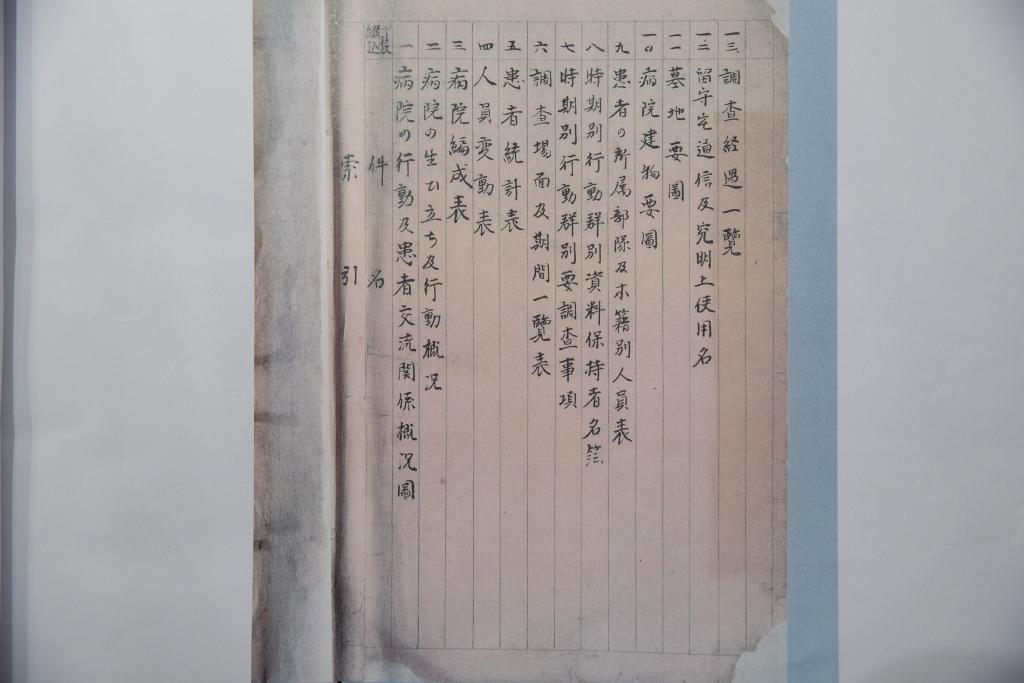 索引
件名
一 病院の行動及患者交流関係概況圖
二 病院の生ひ立ち及行動概況
三 病院編成表
四 人員変動表
五 患者統計表
六 調査場面及期間一覽表
七 時期別行動群別要調査事項
八 時期別行動群別資料保持者名簿
九 患者の所属部隊及本籍別人員表
一〇 病院建物要圖
一一 墓地要圖
一二 留守宅通信及究明上使用名
一三、調査経過一覽